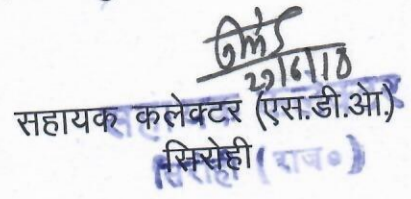 29/6/18
सहायक कलेक्टर (एस.डी.ओ.)
सिरोही
सिरोही (राज०)